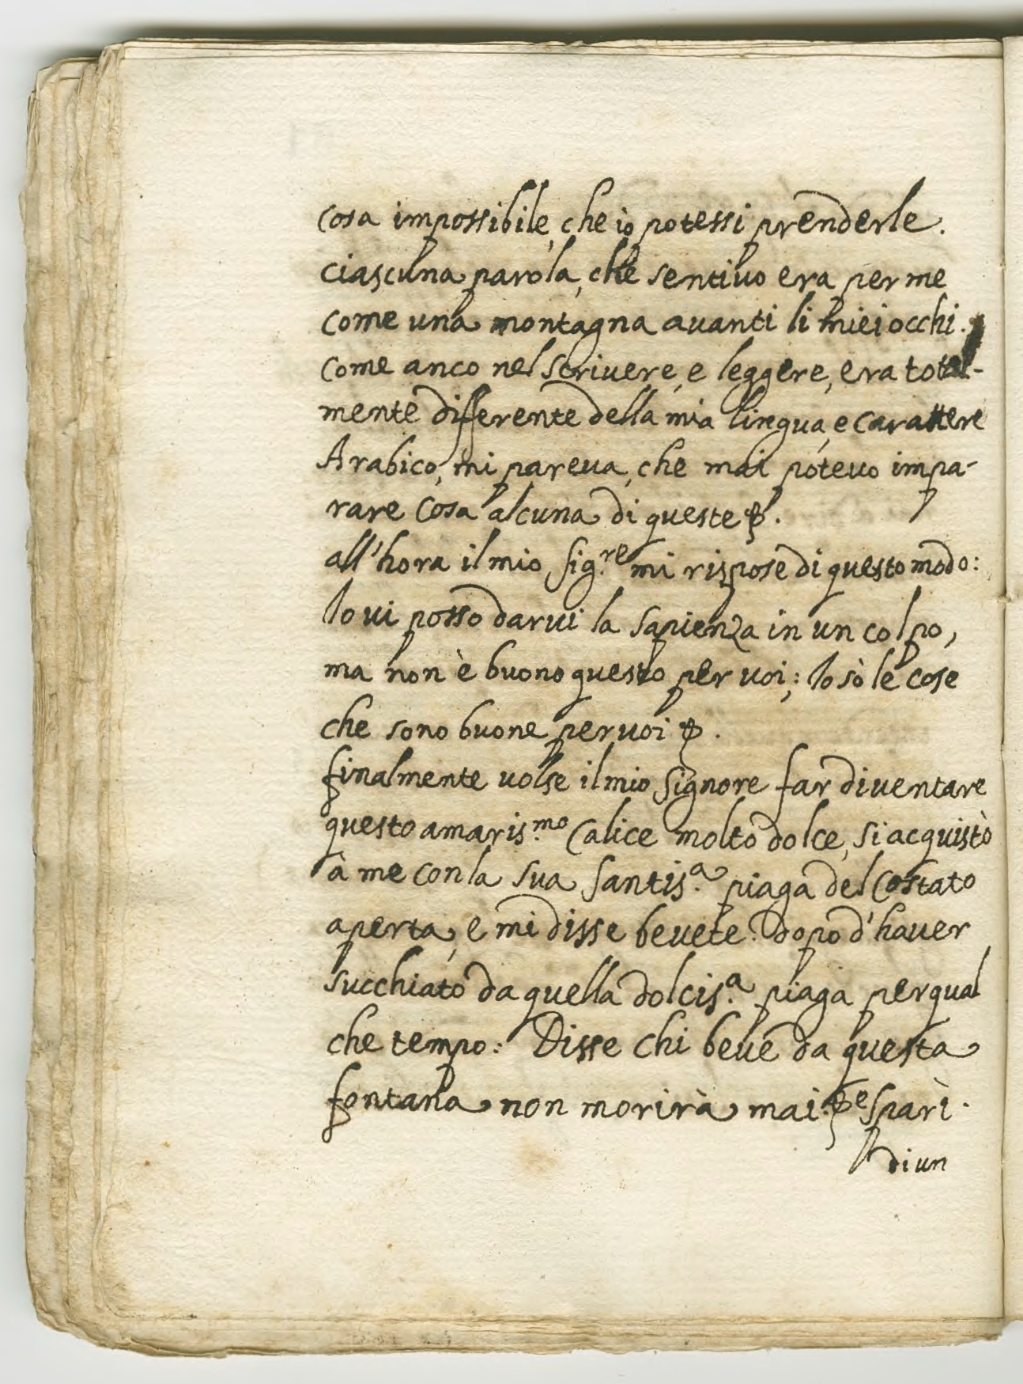 cosa impossibile, che io potessi prenderle.
ciascuna parola, che sentivo era per me
come una montagna avanti li miei occhi.
come anco nel scrivere, e leggere, era total-
mente differente della mia lingua, e carattere
Arabico, mi pareva, che mai potevo impa-
rare cosa alcuna di queste &.
all'hora il mio Sig.re mi rispose di questo modo:
Io vi posso darvi la sapienza in un colpo,
ma non è buono questo per voi; Io sò le cose
che sono buone per voi &.
finalmente volse il mio Signore far diventare
questo amaris.mo Calice molto dolce, si acquistò
à me con la sua Santis.a piaga del Costato
aperta, e mi disse bevete: dopo d'haver
succhiato da quella dolcis.a piaga per qual
che tempo: Disse chi beve da questa
fontana non morirà mai. & e sparì.
di un